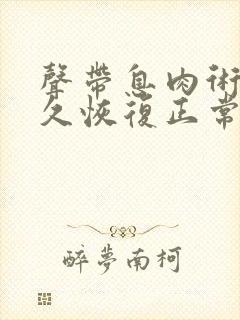 聲帶息肉術
久恢復正常
醉夢南柯